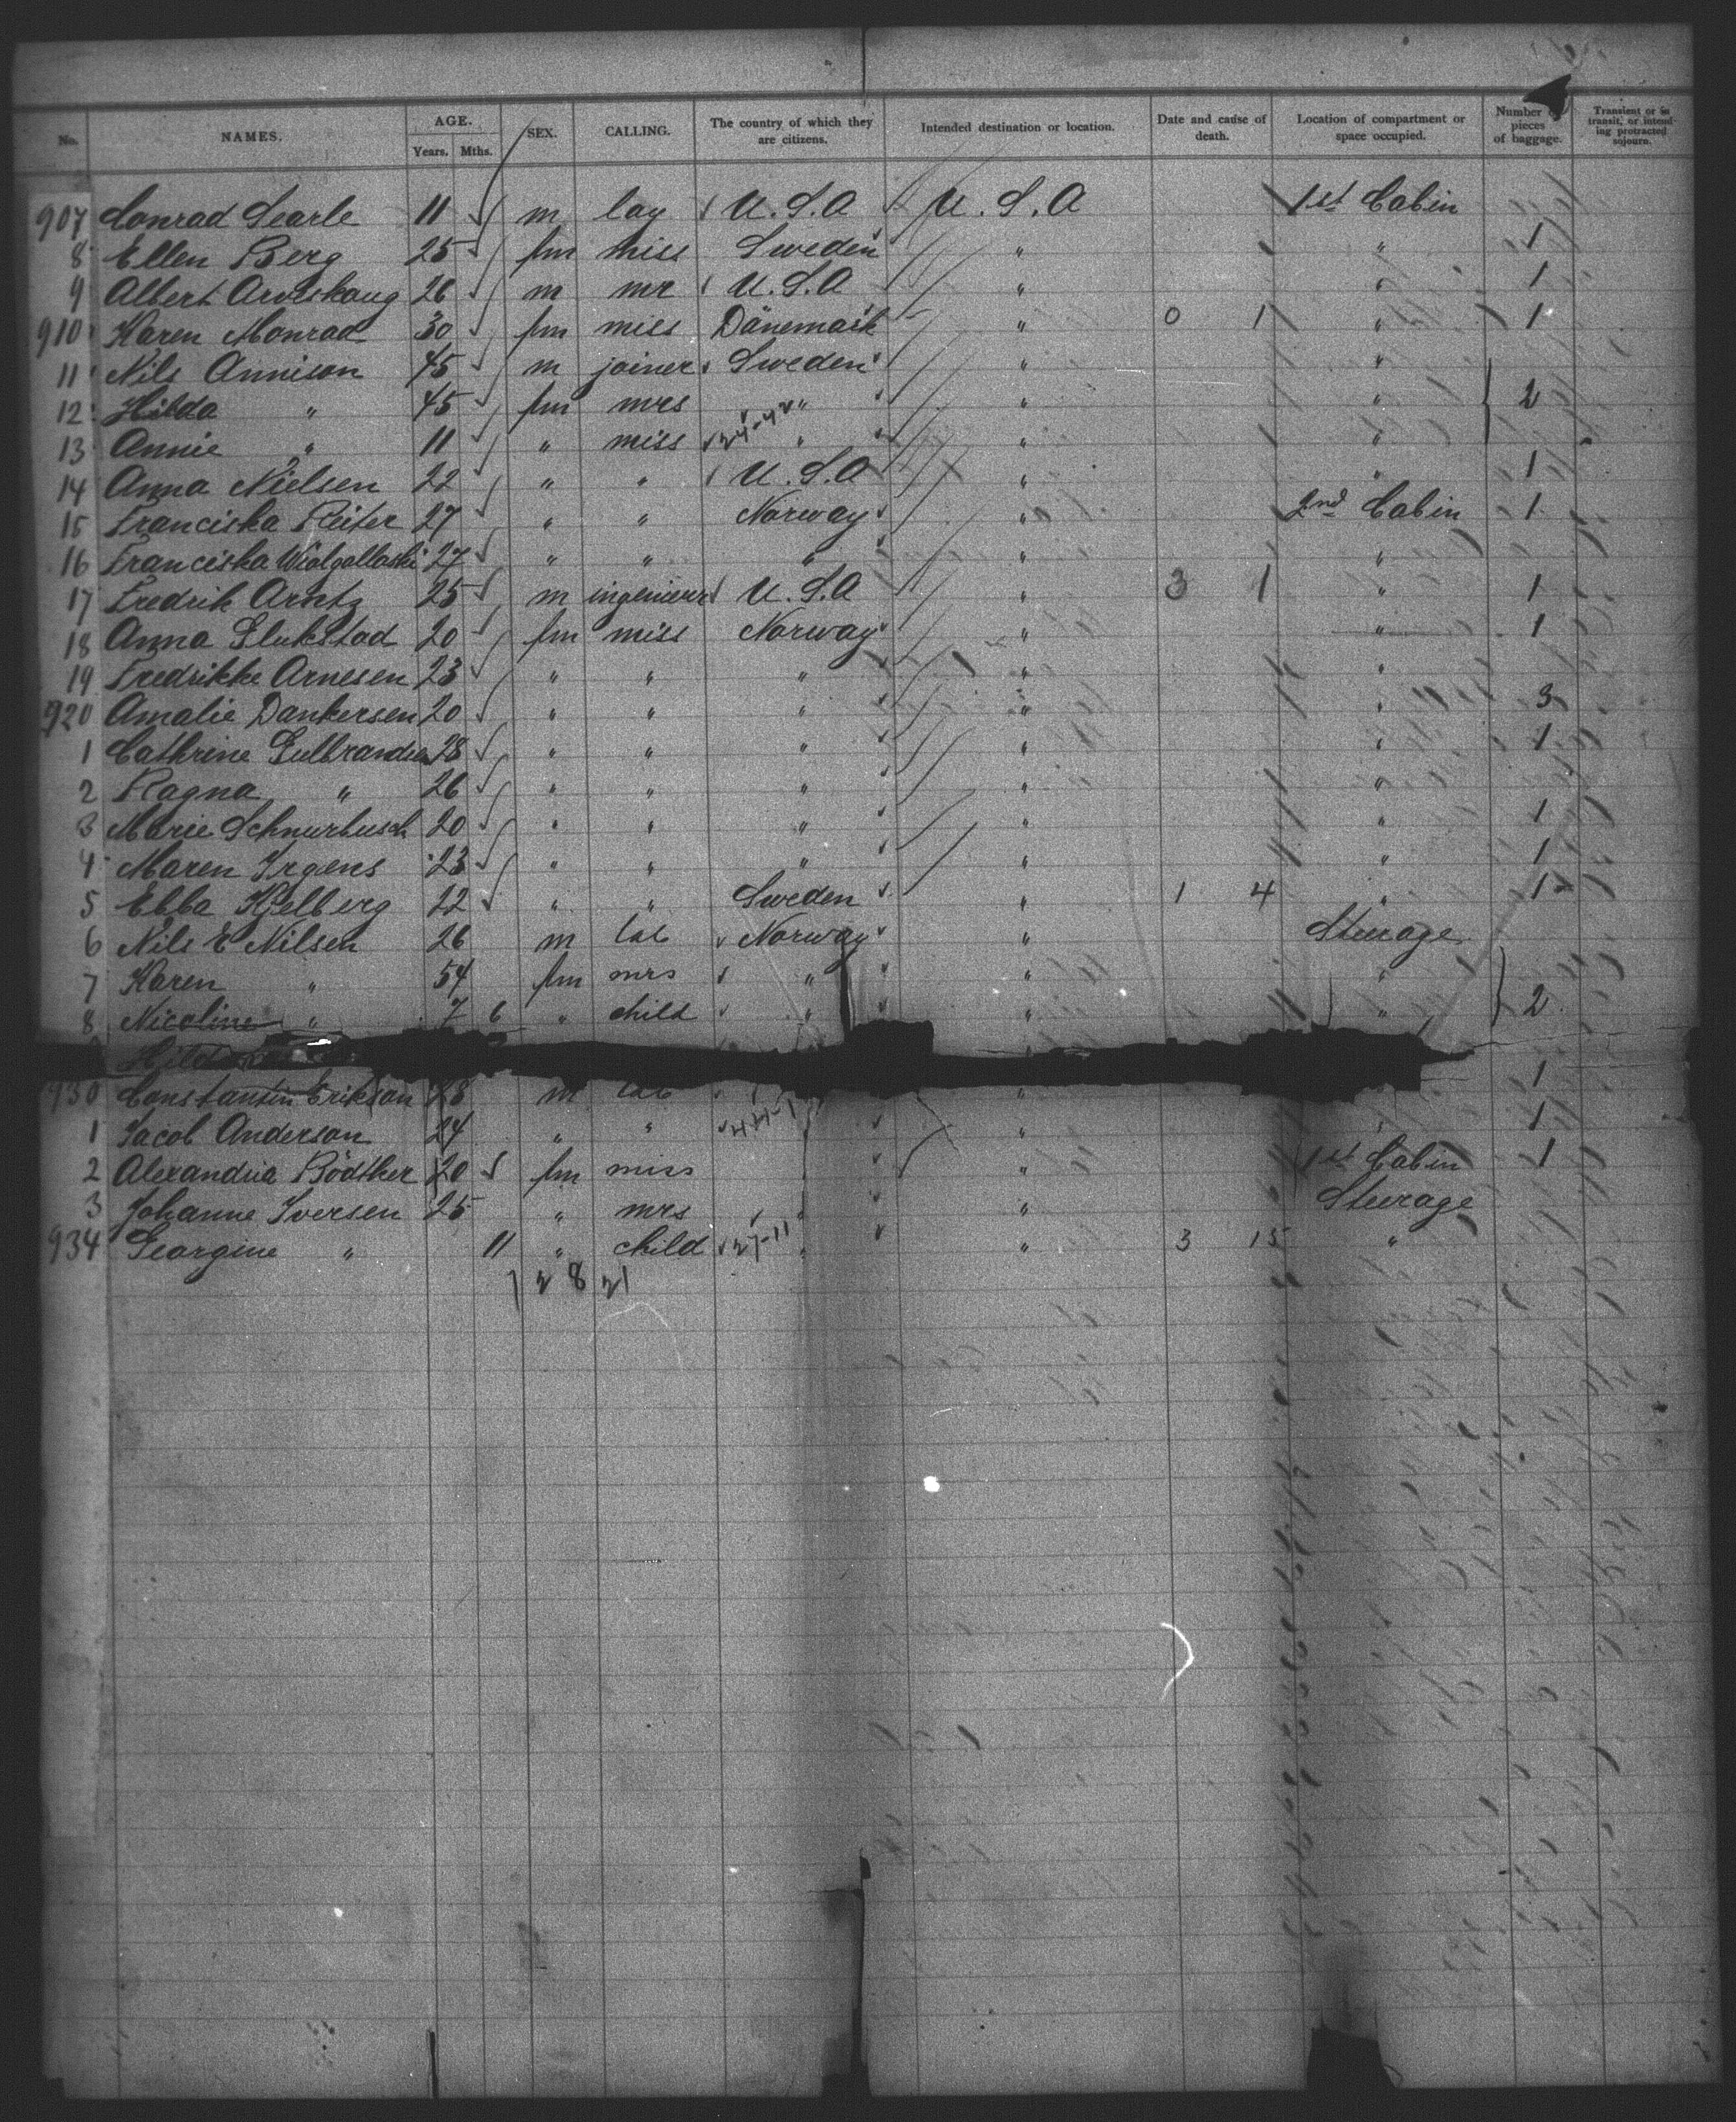 No. NAMES. AGE. Years. Mths. SEX. CALLING. The country of which they are citizens. Intended destination or location. Date and cause of death. Location of compartment or space occupied. Number of pieces of baggage. Transient or in transit, or intending protracted sojourn.
907 Conrad Searle 11 m lay U.S.A U.S.A 1st Cabin
8 Ellen Berg 25 fm miss Sweden " " 1
9 Albert 26 m mr U.S.A " " 1
910 Karen Monrad 30 fm miss Dänemark " 0 1 " 1
11 Nils Annison 45 m joiner Sweden " "
12 Hilda " 45 fm mrs " " " 2
13 Annie " 11 " miss 24-42 " " "
14 Anna Nielsen 22 " " U.S.A " " 1
15 Franciska Reiter 27 " " Norway " 2nd Cabin 1
16 Franciska 27 " " " " "
17 Fredrik Arntz 25 m ingenieur U.S.A " 3 1 " 1
18 Anna Glukstad 20 fm miss Norway " " 1
19 Fredrikke Arnesen 23 " " " " "
920 Amalie Dankersen 20 " " " " " 3
1 Cathrine Gulbrandsen 28 " " " " " 1
2 Ragna " 26 " " " " "
3 Marie Schnurbusch 20 " " " " " 1
4 Maren Irgens 23 " " " " " 1
5 Ebba Kjelberg 22 " " Sweden " 1 4 " 1
6 Nils E Nilsen 26 m lab Norway " Steerage
7 Karen " 54 fm mrs " " "
8 Nicoline " 7 6 " child " " " 2
930 Constantin Erikson 28 m lab " 1
1 Jacob Anderson 24 " " " " 1
2 Alexandria Bödtker 20 fm miss " 1st Cabin 1
3 Johanne Iversen 25 " mrs " " Steerage
934 Georgine " 11 " child 27-11 " " 3 15 "